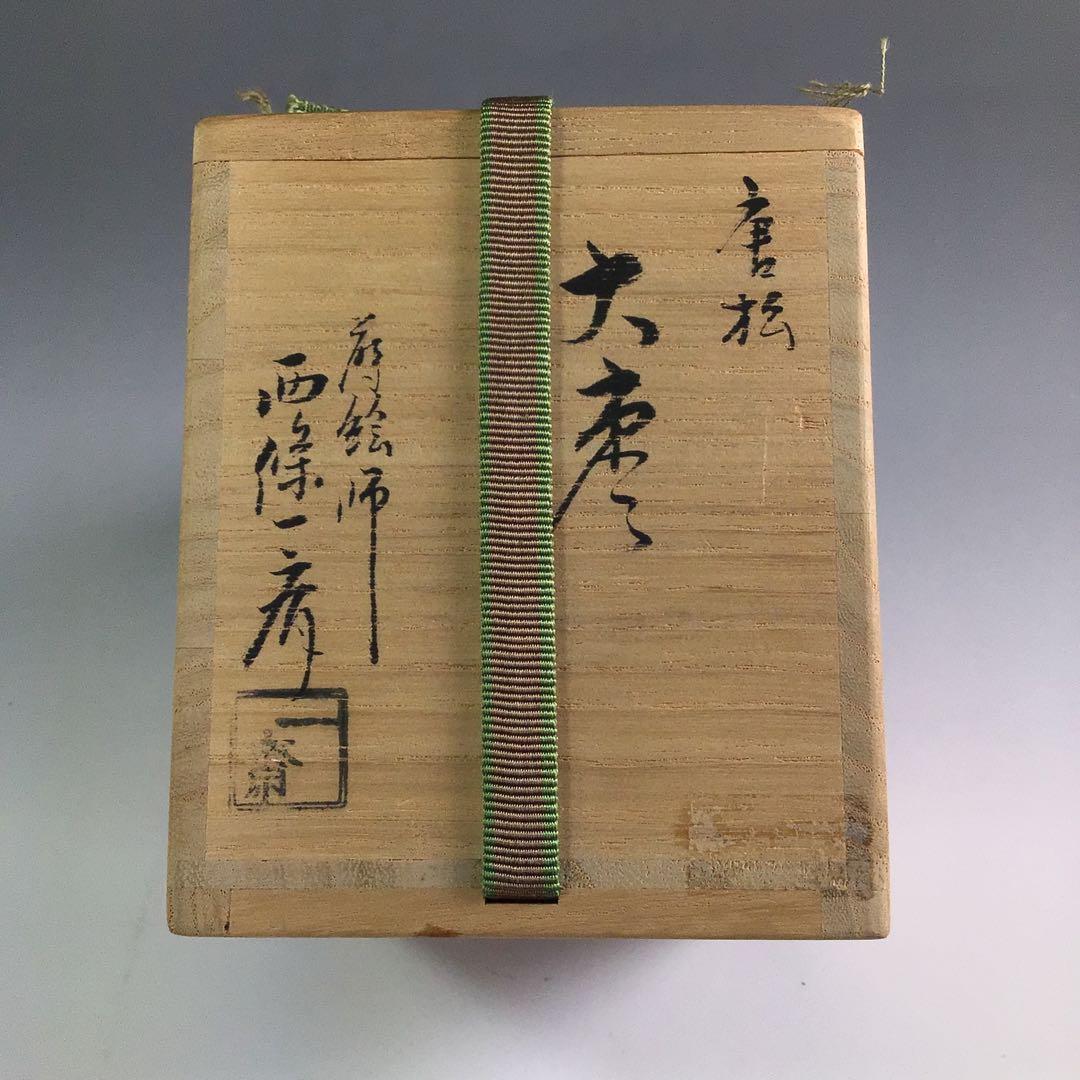 唐松
大棗
蒔絵師
西條一斎
一斎